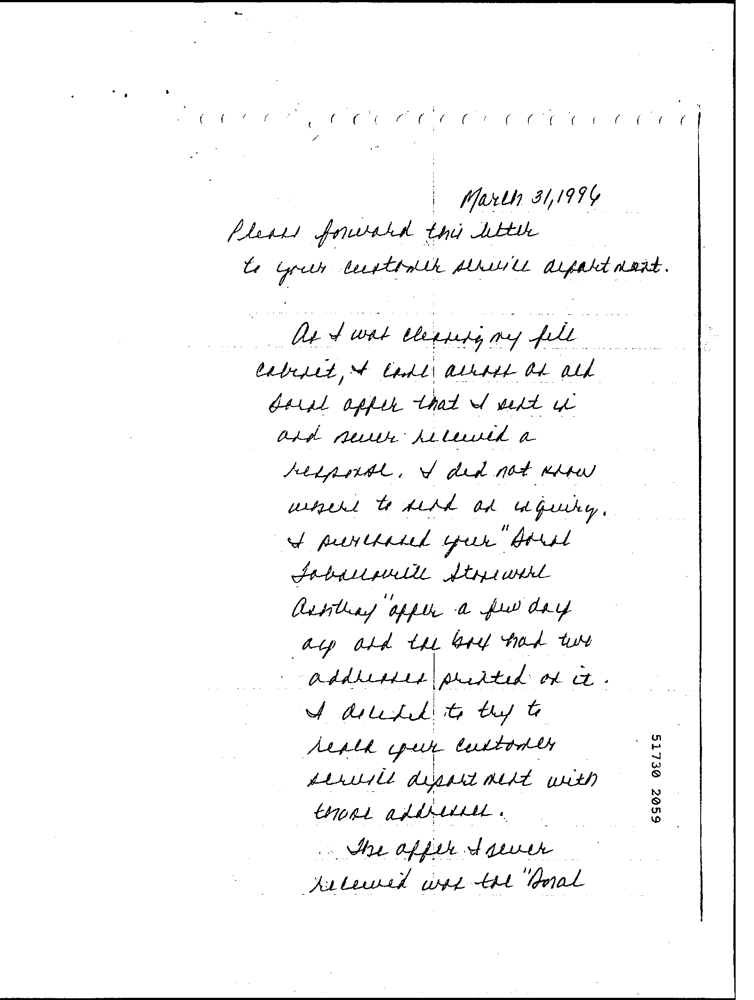 March 31, 1996
Please forward this letter
to your customer service department.
As I was cleaning my file
cabinet, I came across an old
Doral offer that I sent in
and never received a
response. I did not know
where to send an inquiry.
I purchased your "Doral
Tobaccoville Stoneware
Ashtray" offer a few day
ago and the box had two
addresses printed on it.
I decided to try to
reach your customer
service department with
those addresses.
The offer I never
received was the "Doral
51730 2059